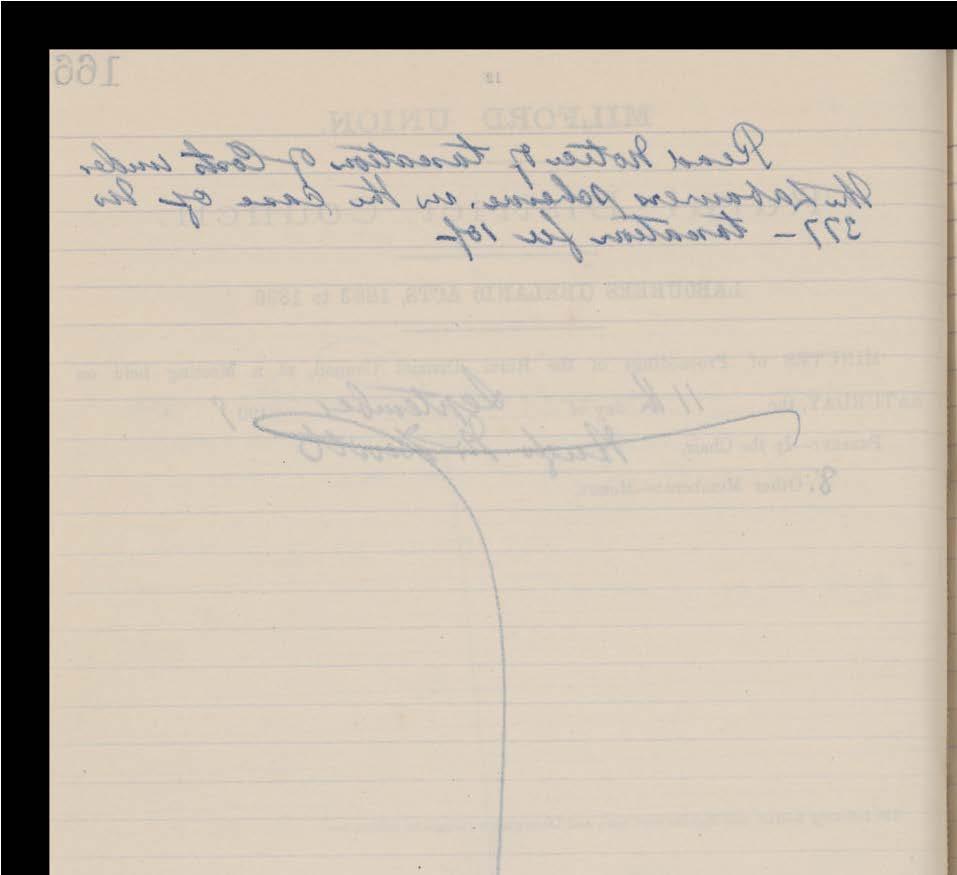 166
12
MILFORD UNION.
Read notice of taxation of Costs under
the Labourers scheme, in the case of No
RURAL DISTRICT COUNCIL.
377 – taxation fee 10/-
LABOURERS (IRELAND) ACTS, 1883 to 1896
MINUTES of Proceedings of the Rural District Council, at a Meeting held on
SATURDAY, the 11th day of September 1909
Present—In the Chair, Hugh
8. Other Members—Messrs.